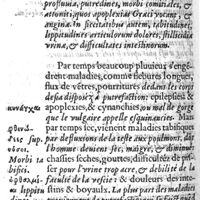 profluuia, putredines, morbi comitiales, &
attoniti, quos apoplexias Græci vocant, &
angina. In siccitatibus autem, tabidi,
lippitudines articulorum dolores, stillicidia
vrinæ, & difficultates intestinorum.
Par temps beaucoup pluuieux s'engé-
drent maladies, comme fiebures longues,
flux de vétres, pourritures dedans les corps
desia disposéz à putrefaction: epilepsies &
apoplexies, & cynanchies, ou mal de gorge
que le vulgaire appelle esquinancies. Mais
par temps sec, viennent maladies tabiques
par defluxions de la teste aux poulmons,
l'homme deuient sec, maigre, &
chassies seches, gouttes, difficultéz de pis-
ser pour l'vrine trop acre, & debilité de la
faculté de la vessie: & douleurs des inte-
stins & boyaulx. La plus part des maladies
κυνάγχαι
φθινά-
δες
Morbi ta
bifici.
lippitu